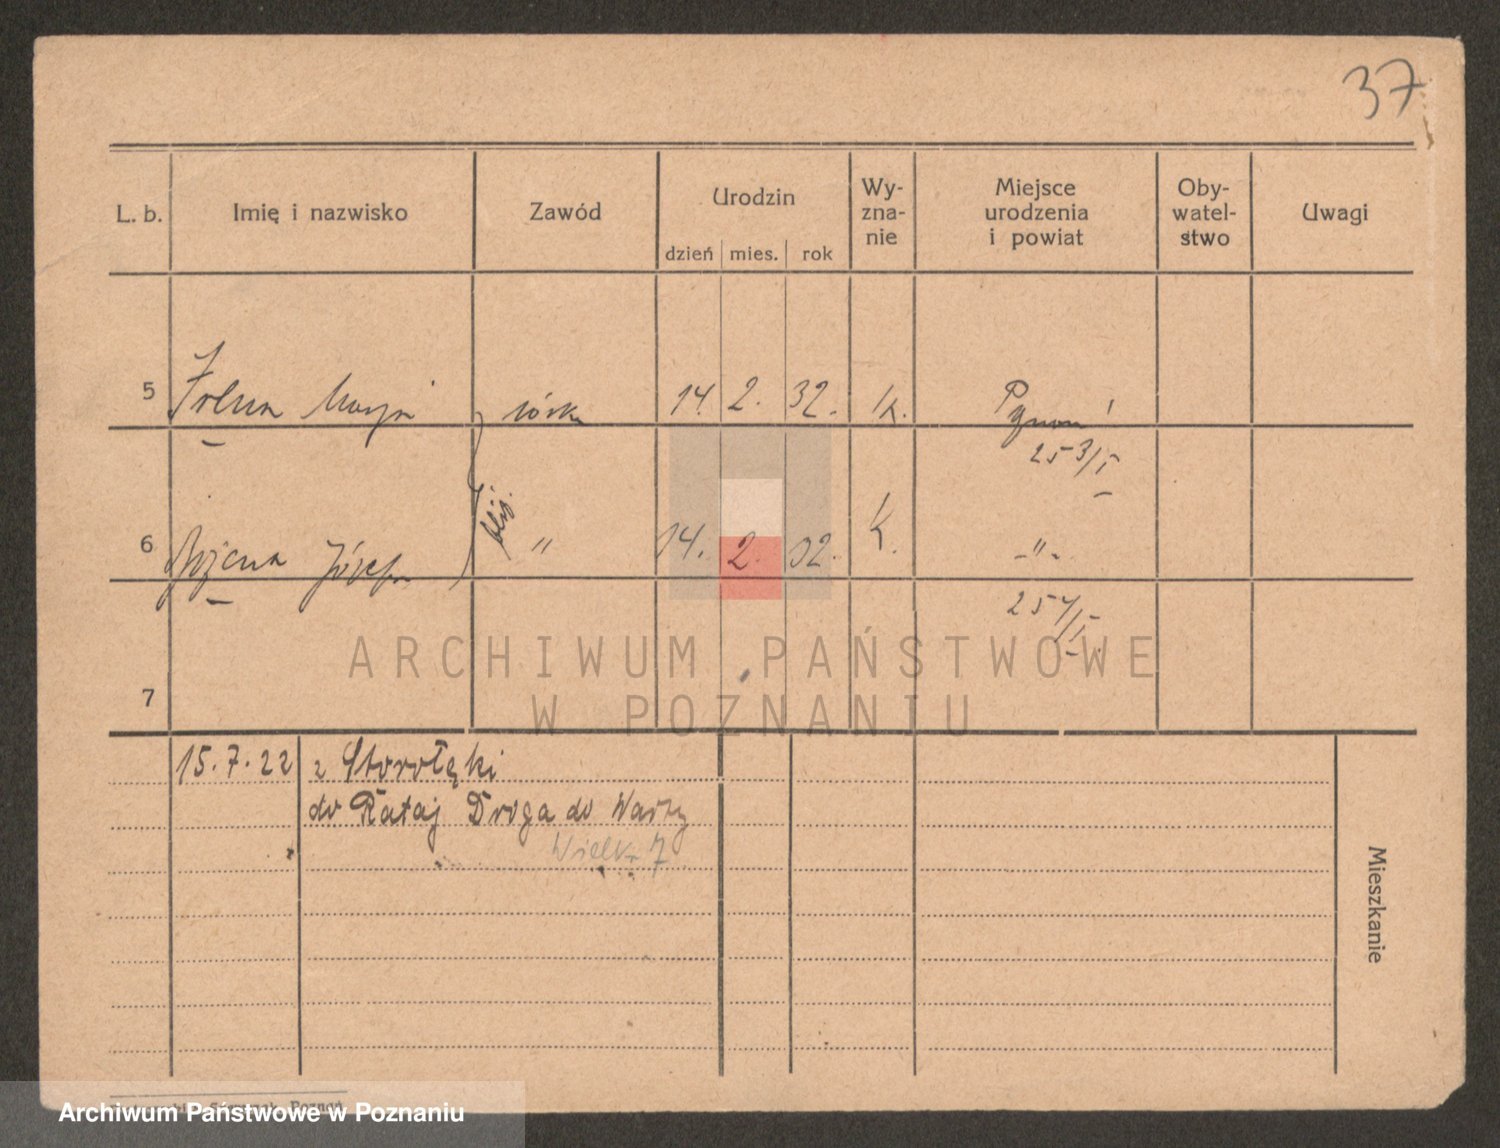 37
L. b. Imię i nazwisko Zawód Urodzin dzień mies. rok Wy-zna-nie Miejsce urodzenia i powiat Oby-watel-stwo Uwagi
5 Irena Marja córka 14. 2. 32. k. Poznań
253/I
6 Bożena Józefa bliź. " 14. 2. 32. k. -"-
254/I
7
ARCHIWUM PAŃSTWOWE
W POZNANIU
15.7.22 z Starołęki
do Rataj Droga do Warty
Wielka 7
Mieszkanie
Poznań
Archiwum Państwowe w Poznaniu